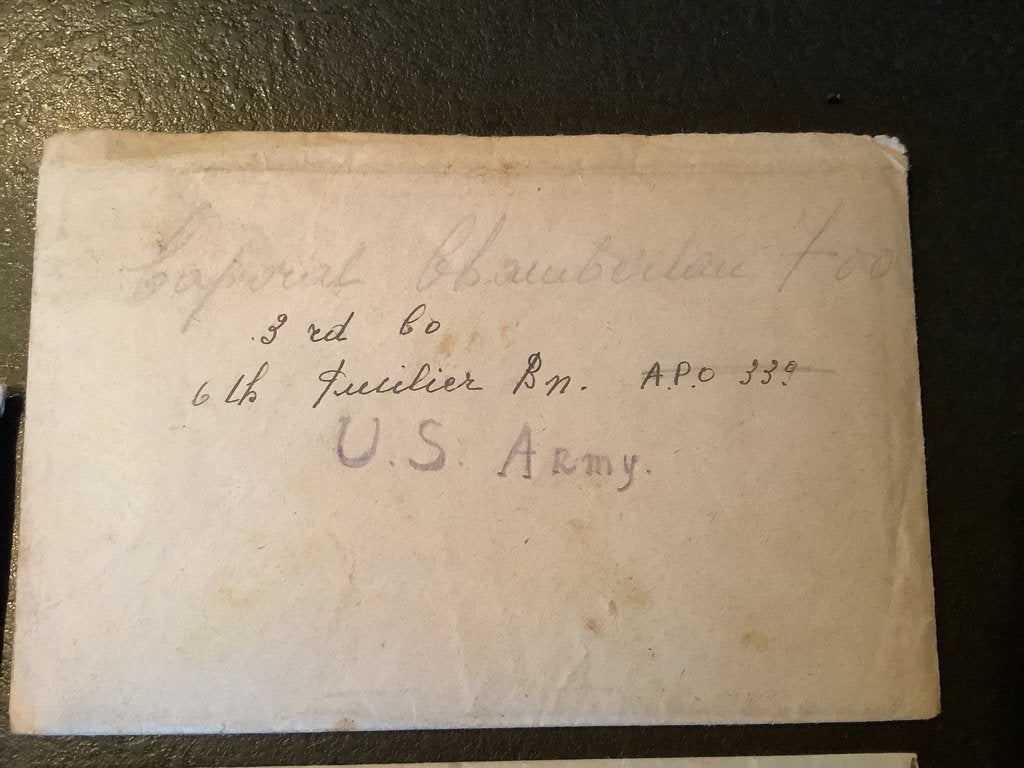 Caporal Chamberlan Foo
3 rd Co
6 th Fusilier Bn. A.P.O 339
U.S. Army.